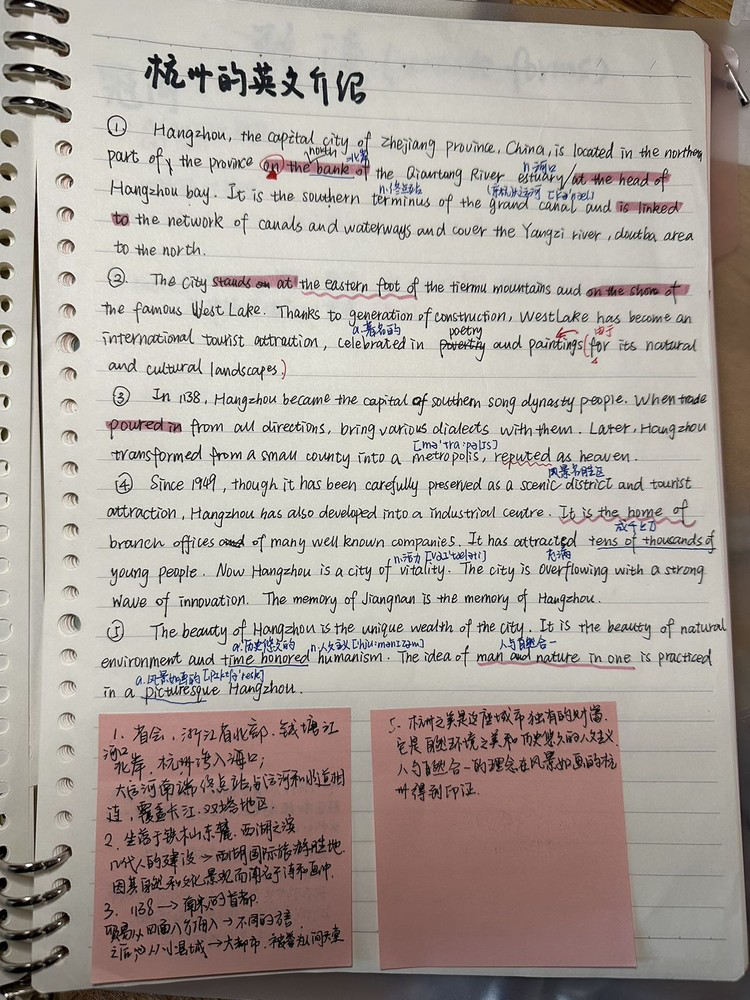 杭州的英文介绍
① Hangzhou, the capital city of Zhejiang province, China, is located in the northern
north 北岸 n.河口
part of the province on the bank of the Qiantang River estuary at the head of
n.终点站 (京杭)大运河 [kə'næl]
Hangzhou bay. It is the southern terminus of the grand canal and is linked
to the network of canals and waterways and cover the Yangzi river, doutba area
to the north.
②. The City stands on at the eastern foot of the tiermu mountains and on the shore of
the famous West Lake. Thanks to generation of construction, WestLake has become an
a.著名的 poetry 由于
international tourist attraction, celebrated in and paintings (for its natural
and cultural landscapes.)
③ In 1138, Hangzhou became the capital of southern song dynasty people. When trade
poured in from all directions, bring various dialects with them. Later, Hangzhou
[mə'trɑ:pəlis]
transformed from a small county into a metropolis, reputed as heaven.
风景名胜区
④ Since 1949, though it has been carefully preserved as a scenic district and tourist
attraction, Hangzhou has also developed into a industrial centre. It is the home of
成千上万
branch offices of many well known companies. It has attracted tens of thousands of
n.活力 [vaɪ'tæləti] 充满
young people. Now Hangzhou is a city of vitality. The city is overflowing with a strong
wave of innovation. The memory of Jiangnan is the memory of Hangzhou.
⑤ The beauty of Hangzhou is the unique wealth of the city. It is the beauty of natural
a.历史悠久的 n.人文主义 [hju:mənizəm] 人与自然合一
environment and time honored humanism. The idea of man and nature in one is practiced
a.风景如画的 [pɪktʃə'resk]
in a picturesque Hangzhou.
1. 省会,浙江省北部.钱塘江
河口
北岸,杭州湾入海口;
大运河南端终点站,与运河和水道相
连,覆盖长江.双塔地区.
2. 坐落于铁木山东麓.西湖之滨
几代人的建设→西湖国际旅游胜地.
因其自然和文化景观而闻名于诗和画中.
3. 1138→南宋的首都.
贸易从四面八方涌入→不同的方言.
之后从小县城→大都市.被誉为人间天堂
5. 杭州之美是这座城市独有的财富.
它是自然环境之美和历史悠久的人文主义.
人与自然合一的理念在风景如画的杭
州得到印证.